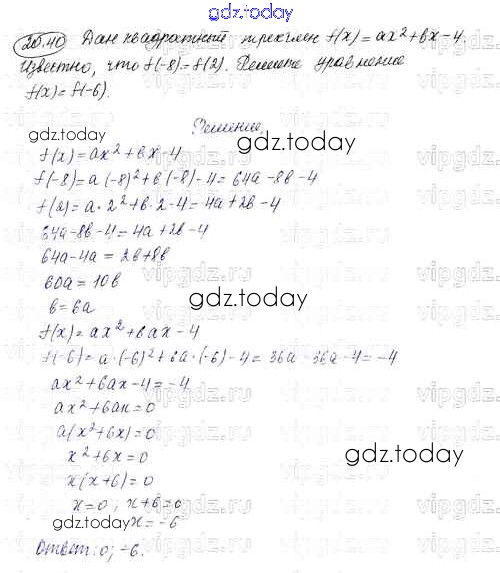 gdz.today
20.40 Дан квадратный трехчлен f(x)=ax²+bx-4.
Известно, что f(-8)=f(2). Решите уравнение
f(x)=f(-6).
gdz.today
Решение.
gdz.today
f(x)=ax²+bx-4
f(-8)=a·(-8)²+b(-8)-4=64a-8b-4
f(2)=a·2²+b·2-4=4a+2b-4
64a-8b-4=4a+2b-4
64a-4a=2b+8b
60a=10b
b=6a
gdz.today
f(x)=ax²+6ax-4
f(-6)=a·(-6)²+6a·(-6)-4=36a-36a-4=-4
ax²+6ax-4=-4
ax²+6ax=0
a(x²+6x)=0
x²+6x=0
gdz.today
x(x+6)=0
x=0; x+6=0
gdz.today x=-6
Ответ: 0; -6.